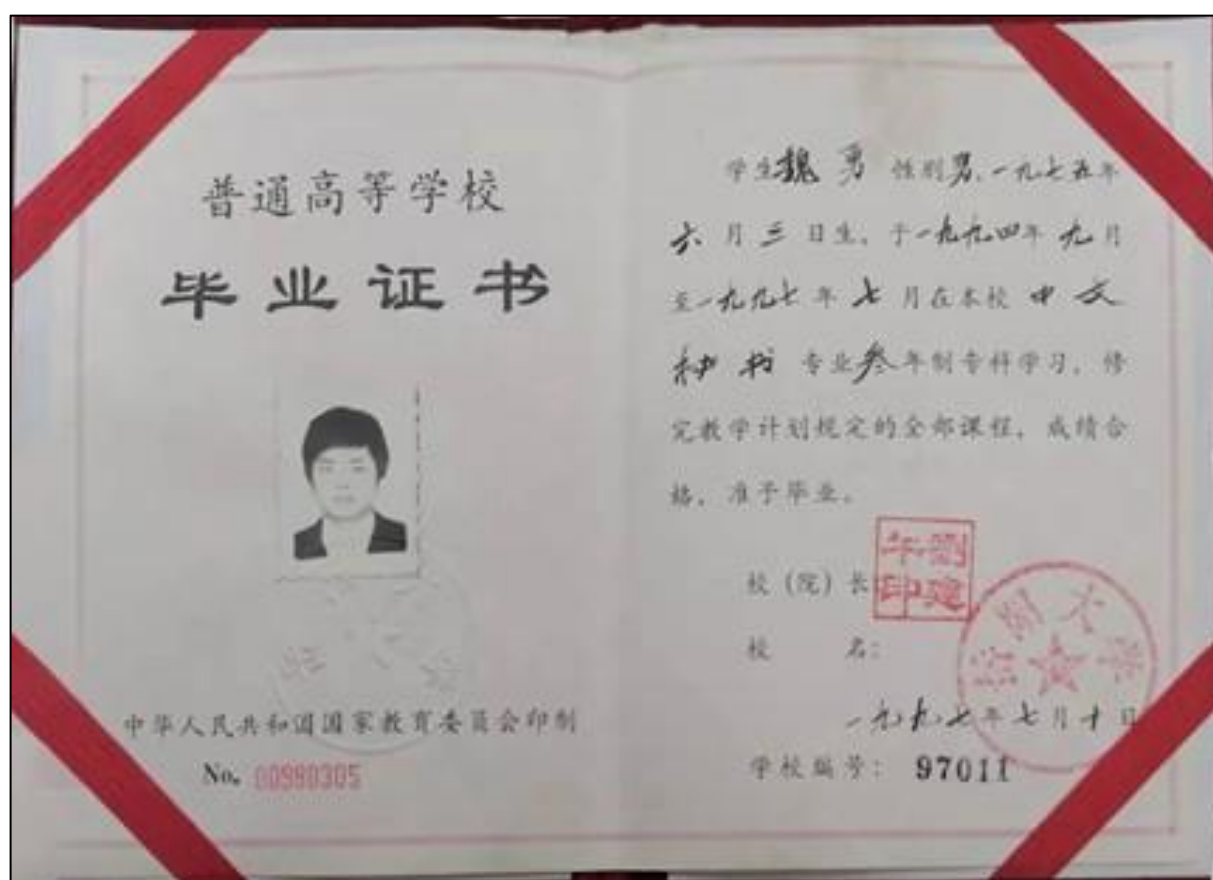 普通高等学校
毕业证书
中华人民共和国国家教育委员会印制
No. 00980305
学生魏勇 性别男,一九七五年
六月三日生,于一九九四年九月
至一九九七年七月在本校中文
秘书专业叁年制专科学习,修
完教学计划规定的全部课程,成绩合
格,准予毕业。
校(院)长
校名:
湘潭大学
一九九七年七月十日
学校编号: 97011